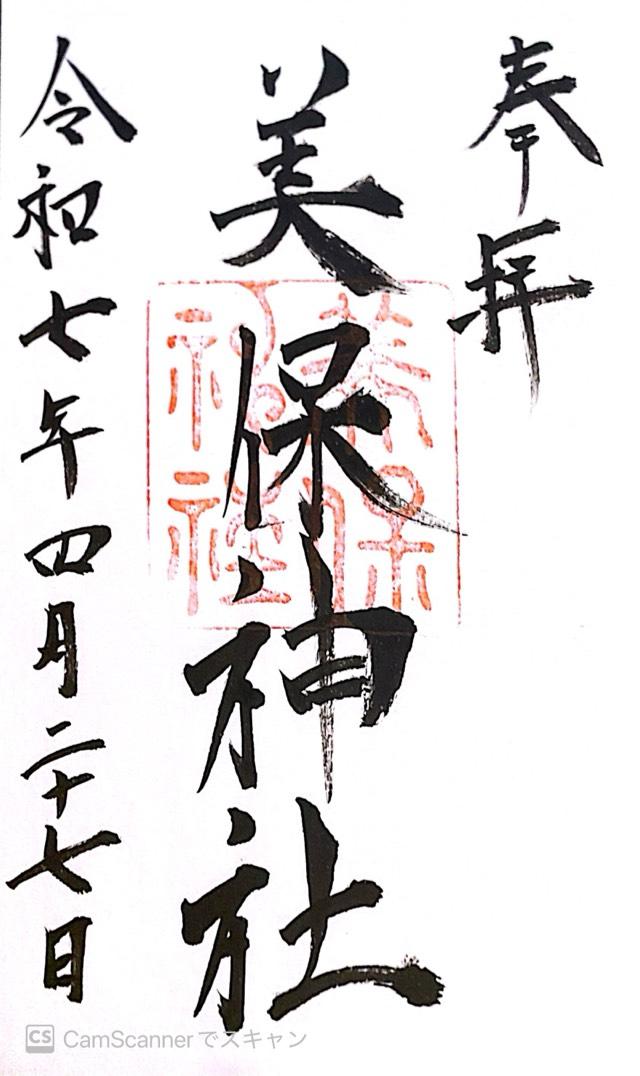 奉拝
美保神社
美保
神社
令和七年四月二十七日
CS CamScannerでスキャン